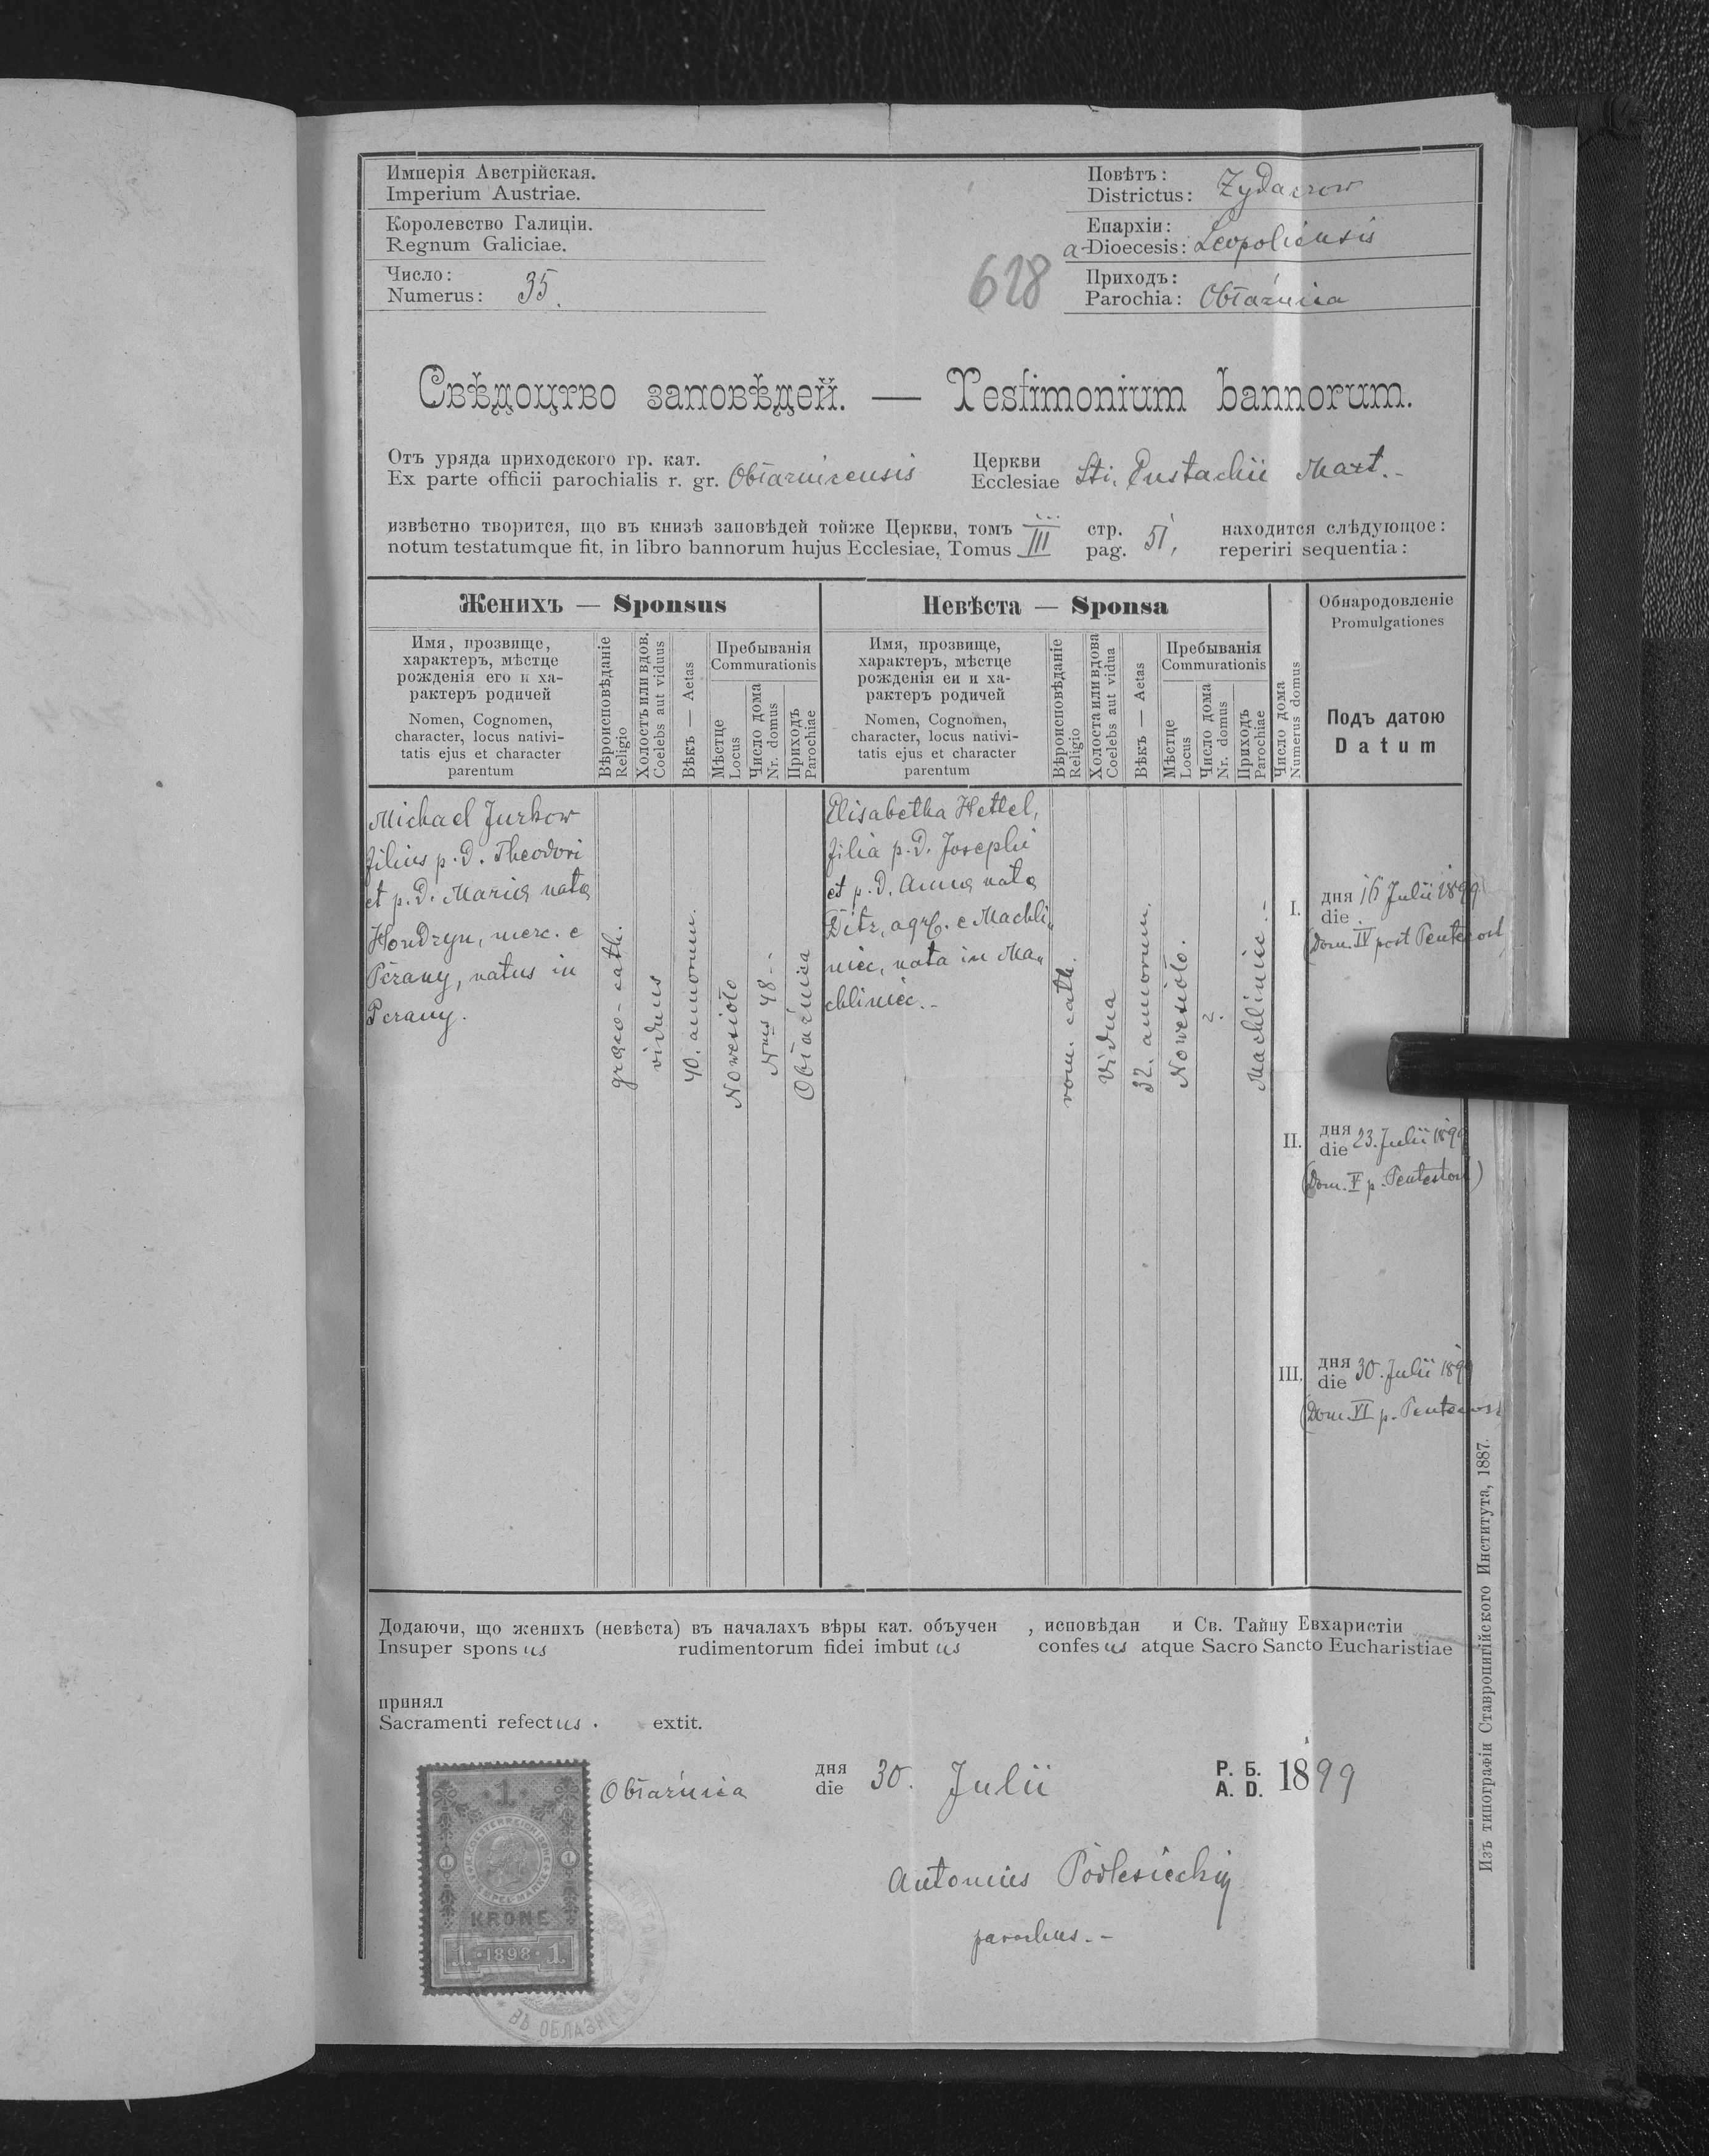 Имперія Австрійская.
Imperium Austriae.
Королевство Галиціи.
Regnum Galiciae.
Число:
Numerus: 35.
628
Повѣтъ:
Districtus: Zydaczow
Епархіи:
a-Dioecesis: Leopoliensis
Приходъ:
Parochia: Obłaźnica
Свѣдоцтво заповѣдей. — Testimonium bannorum.
Отъ уряда приходского гр. кат.
Ex parte officii parochialis r. gr. Obłaznicensis
Церкви
Ecclesiae Sti. Eustachii Mart.-
извѣстно творится, що въ книзѣ заповѣдей тойже Церкви, томъ III стр. 51, находится слѣдующое:
notum testatumque fit, in libro bannorum hujus Ecclesiae, Tomus pag. reperiri sequentia:
Женихъ — Sponsus
Имя, прозвище,
характеръ, мѣстце
рожденія его и ха-
рактеръ родичей
Nomen, Cognomen,
character, locus nativi-
tatis ejus et character
parentum
Вѣроисповѣданіе
Religio
Холостъ или вдов.
Coelebs aut viduus
Вѣкъ — Aetas
Пребыванія
Commurationis
Мѣстце
Locus
Число дома
Nr. domus
Приходъ
Parochiae
Невѣста — Sponsa
Имя, прозвище,
характеръ, мѣстце
рожденія еи и ха-
рактеръ родичей
Nomen, Cognomen,
character, locus nativi-
tatis ejus et character
parentum
Вѣроисповѣданіе
Religio
Холоста или вдова
Coelebs aut vidua
Вѣкъ — Aetas
Пребыванія
Commurationis
Мѣстце
Locus
Число дома
Nr. domus
Приходъ
Parochiae
Число дома
Numerus domus
Обнародовленіе
Promulgationes
Подъ датою
Datum
Michael Jurkow
filius p. D. Theodori
et p. D. Maria nata
Hondzyn, merc. e
Pczany, natus in
Pczany.
graeco-cath.
viduus
40. annorum.
Nowesioło
Nrus 48--
Obłaźnica
Elisabetha Hettel,
filia p. D. Josephi
et p. D. Anna nata
Ditz, agr. e Machli„
niec, nata in Ma„
chliniec.-
rom. cath.
vidua
32. annorum.
Nowesioło.
2.
Machliniec.-
I. дня
die 16 Julii 1899
(Dom. IV post Pentecost
II. дня
die 23. Julii 1899
(Dom. V p. Pentecost)
III. дня
die 30. Julii 1899
(Dom. VI p. Pentecost
Додаючи, що женихъ (невѣста) въ началахъ вѣры кат. объучен , исповѣдан и Св. Тайну Евхаристіи
Insuper sponsus rudimentorum fidei imbutus confesus atque Sacro Sancto Eucharistiae
принял
Sacramenti refectus. extit.
Obłaźnica
дня
die 30. Julii
Р. Б.
A. D. 1899
Antonius Podlesieckij
parochus.-
1
K.K. OESTERREICHISCHE
STEMPEL-MARKE
1 1
KRONE
1 · 1898 · 1
ВЪ ОБЛАЗНИЦѢ
Изъ типографіи Ставропигійского Института, 1887.